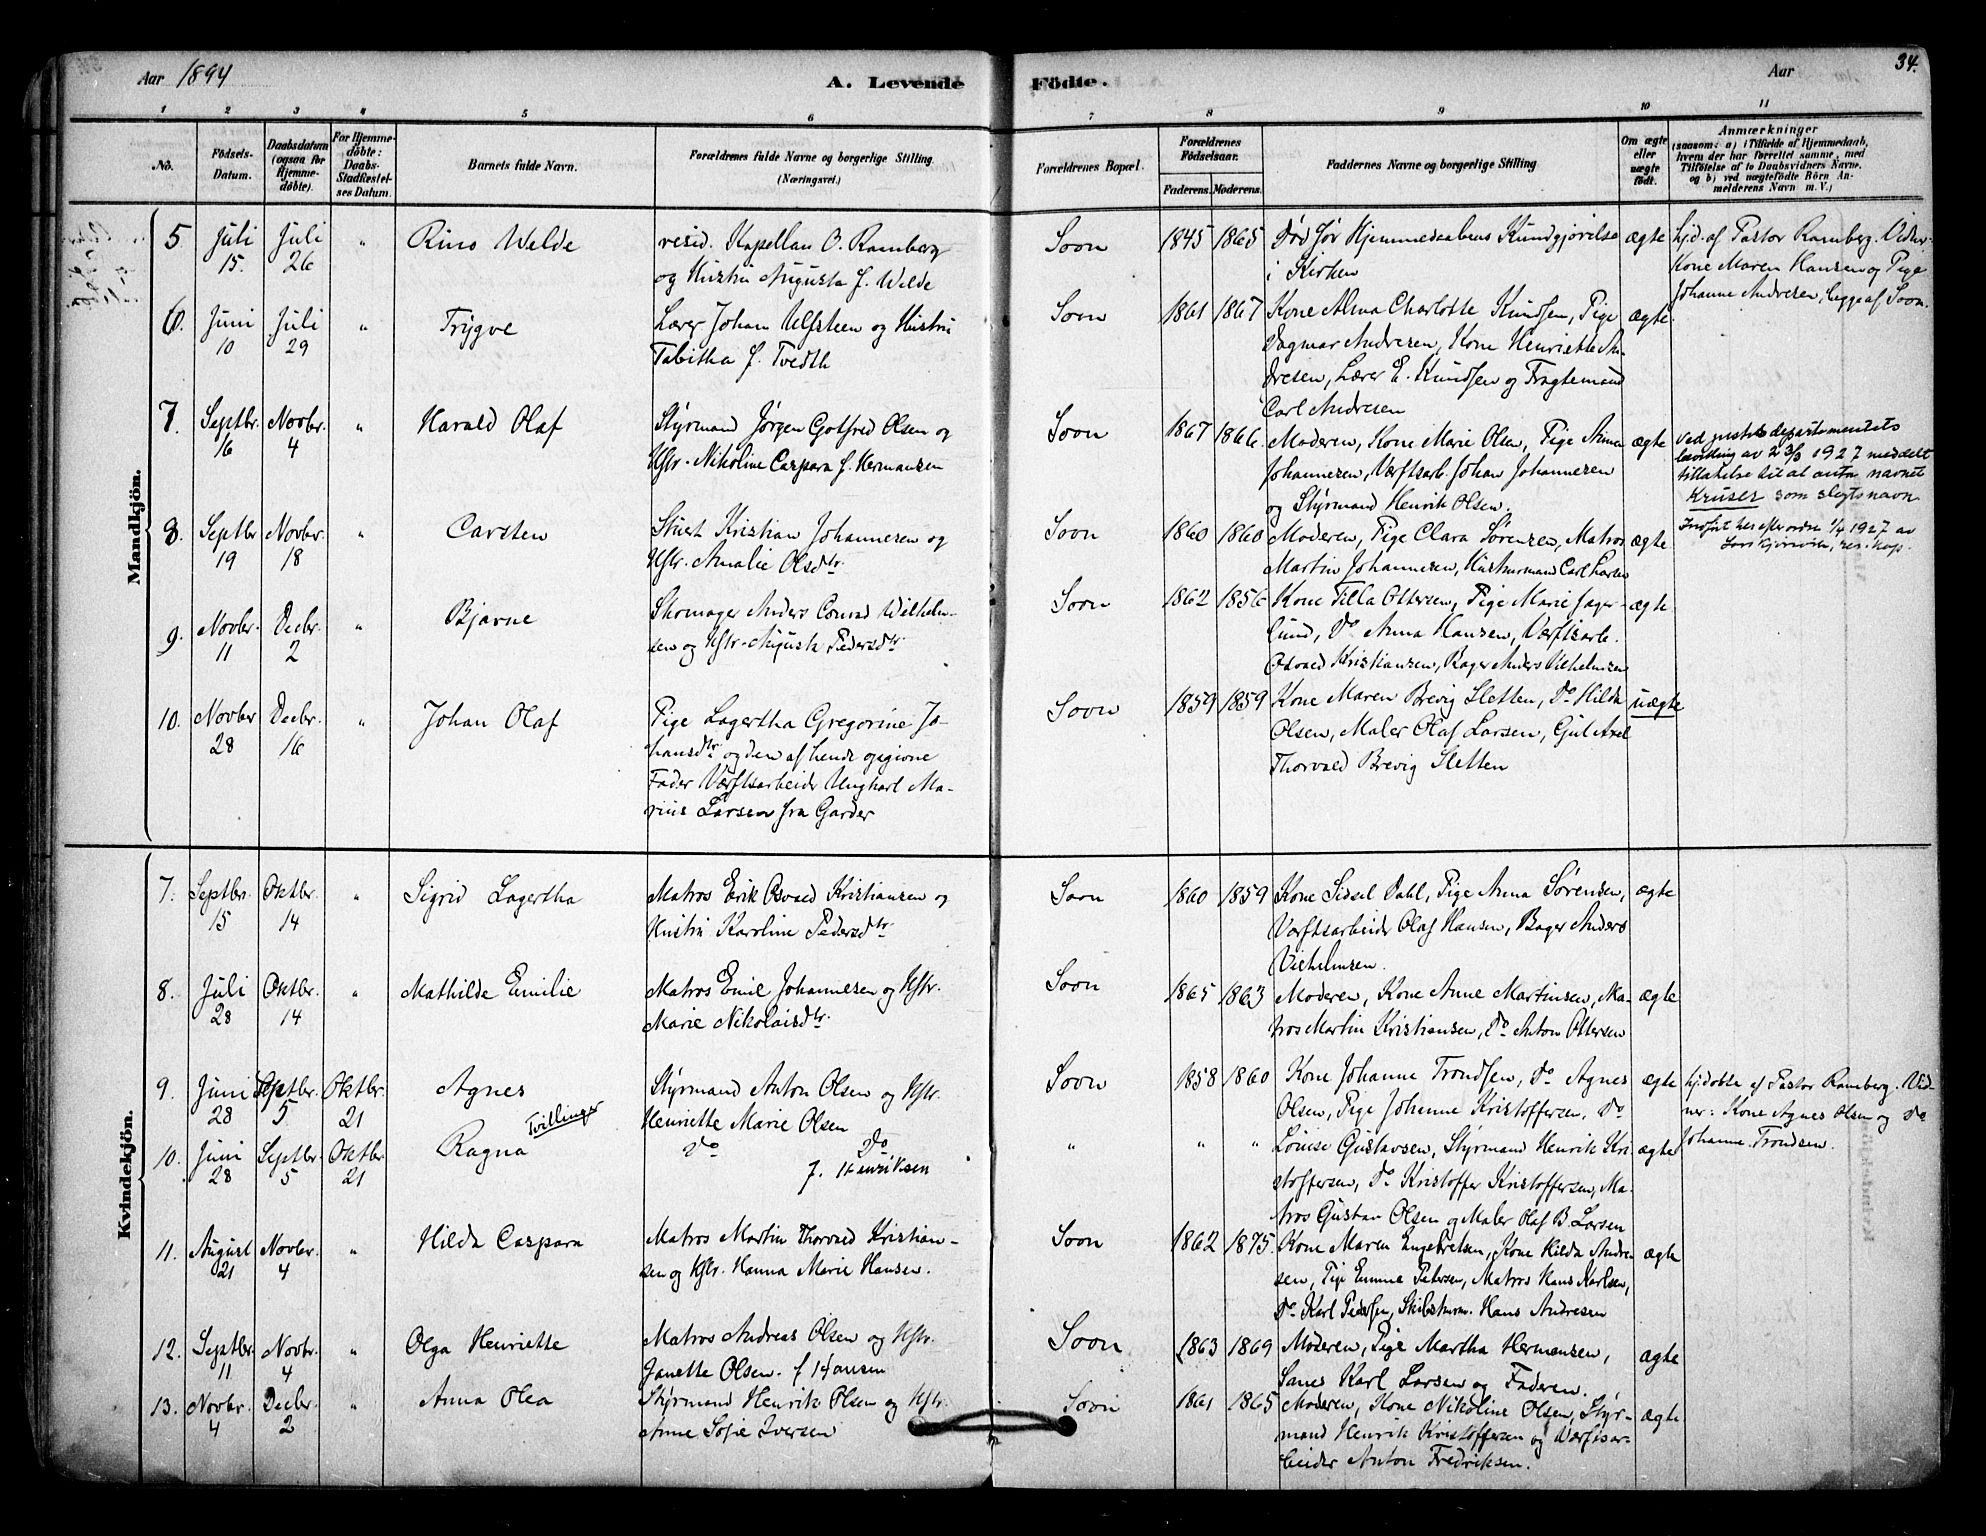 Aar 1894
A. Levende Födte.
Aar
34.
1 2 3 4 5 6 7 8 9 10 11
No.
Födsels-Datum.
Daabsdatum (ogsaa for Hjemmedöbte).
For Hjemmedöbte: Daabs-Stadfæstelses Datum.
Barnets fulde Navn.
Forældrenes fulde Navne og borgerlige Stilling
(Næringsvei.)
Forældrenes Bopæl.
Forældrenes Födselsaar.
Faderens. Moderens.
Faddernes Navne og borgerlige Stilling
Om ægte eller uægte födt.
Anmærkninger
(saasom: a) i Tilfælde af Hjemmedaab, hvem der har forrettet samme, med Tilföielse af to Daabsvidners Navne, og b) ved uægtefödte Börn Anmelderens Navn m. V.)
Mandkjön.
5 Juli 15. Juli 26 " Rino Welde
resid. Kapellan O. Ramberg
og Hustru Augusta f. Welde
Soon 1845 1865 Død før Hjemmedaabens Kundgjørelse
i Kirken
ægte
hjd. af Pastor Ramberg. Vidner
Kone Maren Hansen og Pige
Johanne Andresen, begge af Soon.
6. Juni 10 Juli 29 " Trygve
Lærer Johan Ulfsteen og Hustru
Tabitha f. Tvedth
Soon 1861 1867 Kone Alma Charlotte Knudsen, Pige
Dagmar Andresen, Kone Henriette An-
dresen, Lærer E. Knudsen og Fragtemand
Carl Andresen
ægte
7. Septbr. 16 Novbr. 4 " Harald Olaf
Styrmand Jørgen Gotfred Olsen og
Hstr. Nikoline Caspara f. Hermansen
Soon 1867 1866. Moderen, Kone Marie Olsen, Pige
Johannesen, Værftsarb. Johan Johannesen
og Styrmand Henrik Olsen.
ægte
Ved justitsdepartementets
bevilling av 23/3 1927 meddelt
tillatelse til at anta navnet
Kruser som slegtsnavn
Indført her efter ordre 1/4 1927 av
8. Septbr 19 Novbr. 18 " Carsten
Stuert Kristian Johannesen og
Hstr. Amalie Olsdtr.
Soon 1860 1860 Moderen, Pige Clara Sørensen, Matros
Martin Johannesen, Carl Larsen
ægte
9. Novbr. 11 Decbr. 2 " Bjarne
Skomager Anders Conrad Wilhelm-
sen og Hstr. Augusta Pedersdtr
Soon 1862 1856 Kone Tilla Ottersen, Pige Marie Jager-
lund, Do Anna Hansen, Værftsarb.
Osvald Kristiansen, Bager Anders Vilhelmsen
ægte
10. Novbr 28 Decbr. 16 " Johan Olaf
Pige Lagertha Gregorine Jo-
hansdtr og den af hende opgivne
Fader Værftsarbeider Ungkarl Ma-
rius Larsen fra Garder
Soon 1859 1859 Kone Maren Brevig Sletten, Do Hilda
Olsen, Maler Olaf Larsen, Gut Axel
Thorvald Brevig Sletten
uægte
Kvindekjön.
7. Septbr. 15 Oktbr. 14 " Sigrid Lagertha
Matros Erik Osvald Kristiansen og
Hustru Karoline Pedersdtr
Soon 1860 1859 Kone Sidsel Dahl, Pige Anna Sørensen,
Værftsarbeider Olaf Hansen, Bager Anders
Vilhelmsen.
ægte
8. Juli 28 Oktbr. 14 " Mathilde Emilie
Matros Emil Johannesen og Hstr.
Marie Nikolaisdtr.
Soon 1865 1863 Moderen, Kone Anne Martinsen, Ma-
tros Martin Kristiansen, Do Anton Ottersen
ægte
9. Juni 28 Septbr. 5 Oktbr. 21 Agnes
Tvillinger
Styrmand Anton Olsen og Hstr.
Henriette Marie Olsen
Soon 1858 1860 Kone Johanne Trondsen, Do Agnes
Olsen, Pige Johanne Kristoffersen, Do
ægte
hjdøbte af Pastor Ramberg. Vid-
ner: Kone Agnes Olsen og Do
Johanne Trondsen.
10. Juni 28 Septbr. 5 Oktbr. 21 Ragna
Do Do
f. Henriksen
" " " Louise Gustavsen, Styrmand Henrik Kri-
stoffersen, Do Kristoffer Kristoffersen, Ma-
tros Gustav Olsen og Maler Olaf B. Larsen
ægte
11. August 21 Novbr. 4 " Hilda Caspara
Matros Martin Thorvald Kristian-
sen og Hstr. Hanna Marie Hansen.
Soon 1862 1875. Kone Maren Engebretsen, Kone Hilda Andre-
sen, Pige Emma Petersen, Matros Hans Karlsen,
Do Karl Pedersen, Skibstørm. Hans Andresen
ægte
12. Septbr. 11 Novbr. 4 " Olga Henriette
Matros Andreas Olsen og Hstr.
Janette Olsen. f Hansen
Soon 1863 1869 Moderen, Pige Martha Hermansen,
Karl Larsen og Faderen.
ægte
13. Novbr. 4 Decbr. 2 " Anna Olea
Styrmand Henrik Olsen og Hstr.
Anne Sofie Iversen
Soon 1861 1865 Moderen, Kone Nikoline Olsen, Styr-
mand Henrik Kristoffersen og Værftsar-
beider Anton Fredriksen.
ægte